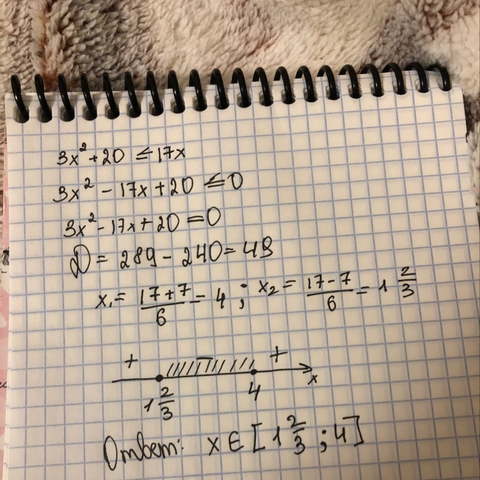 3x² + 20 ≤ 17x
3x² - 17x + 20 ≤ 0
3x² - 17x + 20 = 0
D = 289 - 240 = 49
x₁ = (17+7)/6 = 4 ; x₂ = (17-7)/6 = 1 2/3
+ - +
1 2/3 4 x
Ответ: x ∈ [1 2/3 ; 4]